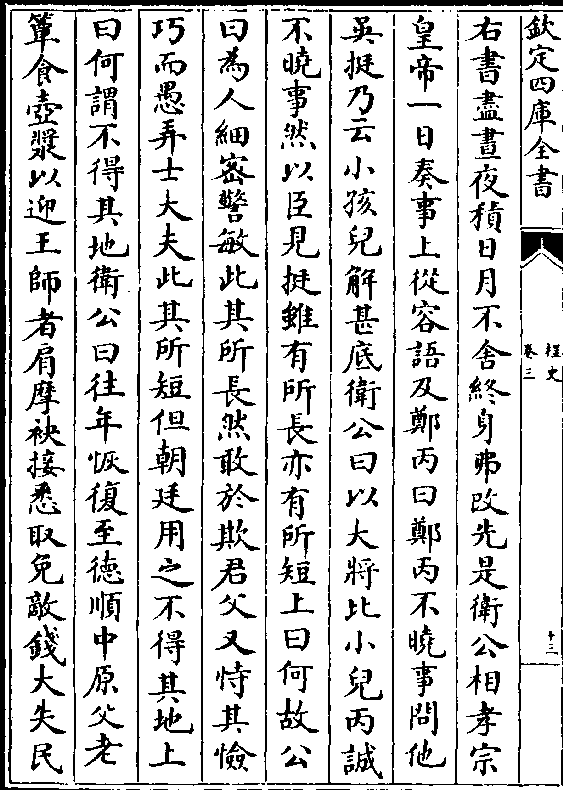 欽定四庫全書
桯史
卷三
十三
右書盡晝夜積日月不舍終身弗改先是衛公相孝宗
皇帝一日奏事上從容語及鄭丙曰鄭丙不曉事問他
吳挺乃云小孩兒解甚底衛公曰以大將比小兒丙誠
不曉事然以臣見挺雖有所長亦有所短上曰何故公
曰為人細密警敏此其所長然敢於欺君父又恃其憸
巧而愚弄士大夫此其所短但朝廷用之不得其地上
曰何謂不得其地衛公曰往年恢復至德順中原父老
簞食壺漿以迎王師者肩摩袂接悉取免敵錢大失民